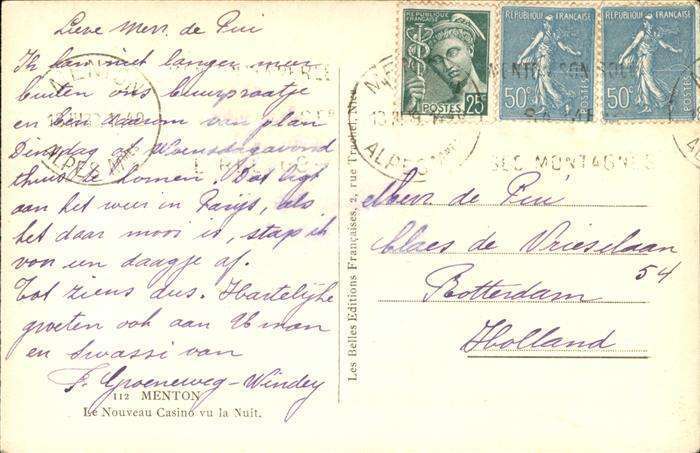 Lieve Mevr. de Pui
Ik kan niet langer meer
buiten ons buurpraatje
en ben daarom van plan
Dinsdag of Woensdagavond
thuis te komen. Dat ligt
aan het weer in Parijs, als
het daar mooi is, stap ik
voor een daagje af.
Tot ziens dus. Hartelijke
groeten ook aan Uw man
en Swassi van
F. Groeneweg-Windey
112 MENTON
Le Nouveau Casino vu la Nuit.
Les Belles Editions Françaises, 2, rue Trachel, Nice
REPUBLIQUE FRANÇAISE
POSTES 25c
REPUBLIQUE FRANÇAISE
50c POSTES
REPUBLIQUE FRANÇAISE
50c POSTES
MENTON
ALPES Mmes
MENTON SON
DES MONTAGNES
Mevr. de Pui
Claes de Vrieselaan
54
Rotterdam
Holland